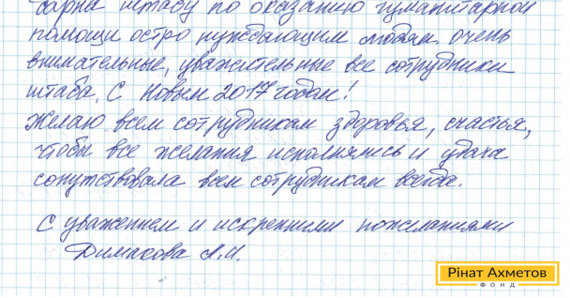 дарна штабу по оказанию гуманитарной
помощи остро нуждающим людям. очень
внимательные, уважительные все сотрудники
штаба. С Новым 2017 годом!
Желаю всем сотрудникам здоровья, счастья,
чтобы все желания исполнялись и удача
сопутствовала всем сотрудникам всегда.
С уважением и искренними пожеланиями
Димакова Л.И.
Рінат Ахметов
ФОНД